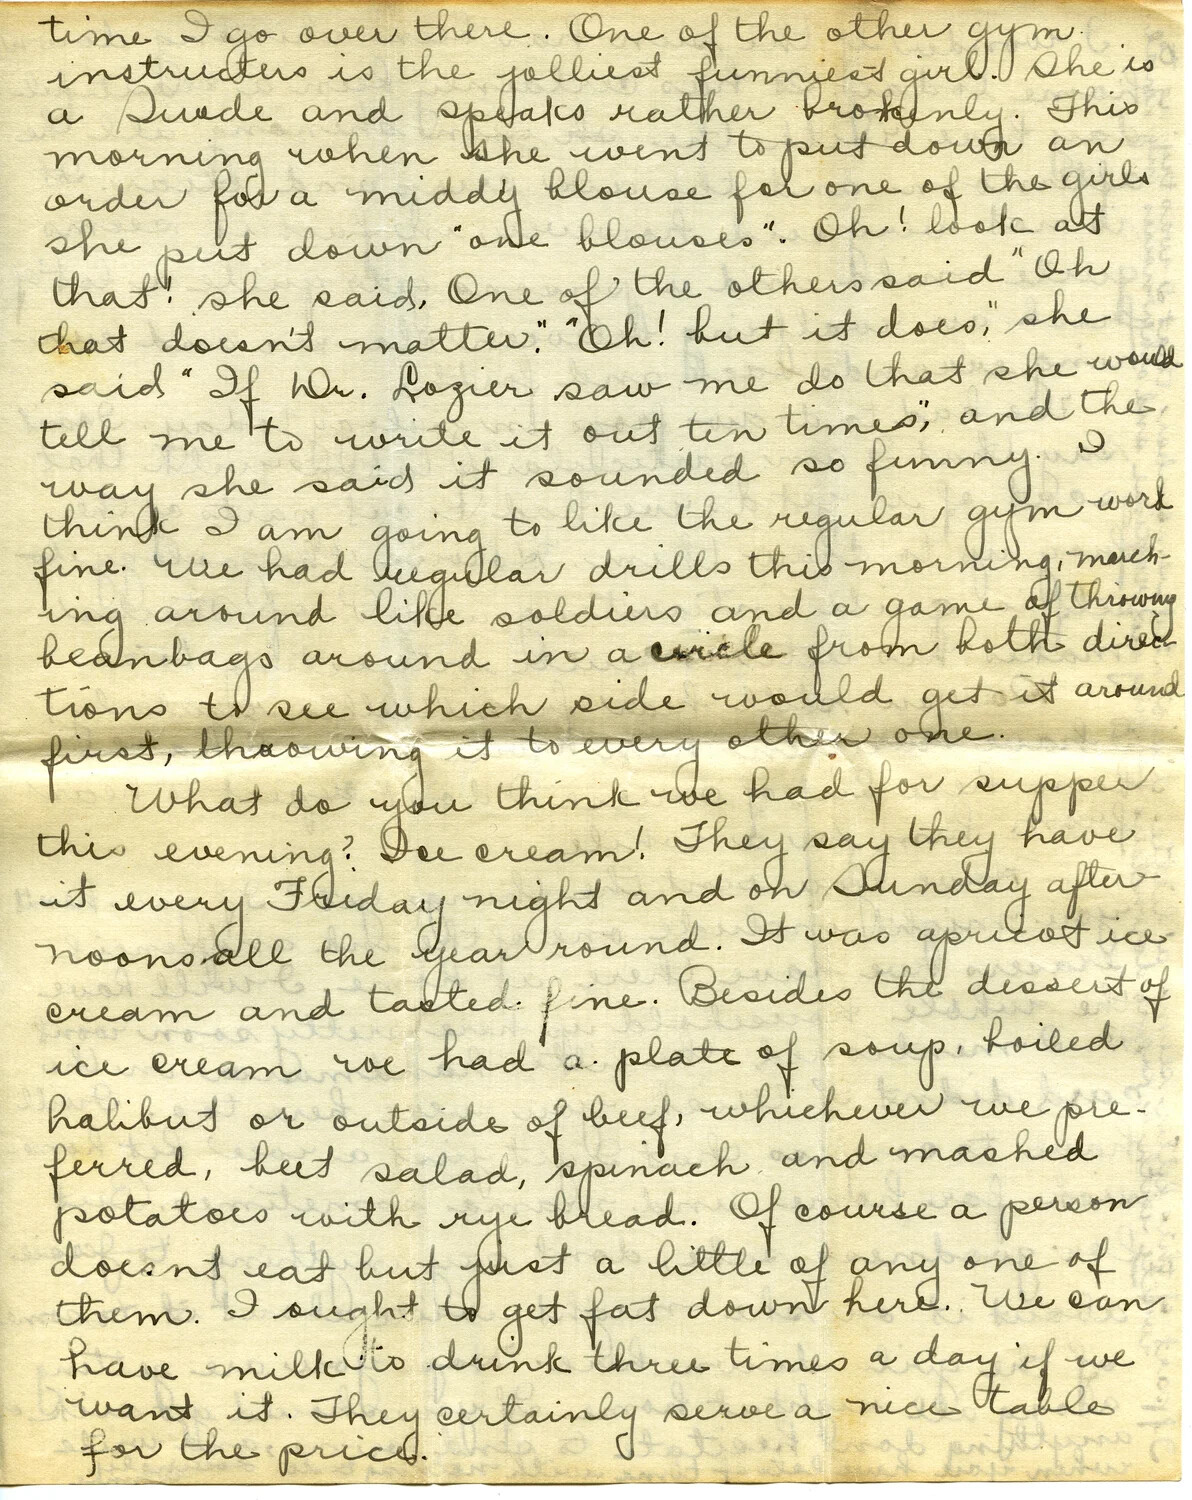 time I go over there. One of the other gym
instructers is the jolliest funniest girl. She is
a Swede and speaks rather brokenly. This
morning when she went to put down an
order for a middy blouse for one of the girls
she put down "one blouses". Oh! look at
that! she said. One of the others said "Oh
that doesn't matter." "Oh! but it does," she
said "If Dr. Lozier saw me do that she would
tell me to write it out ten times", and the
way she said it sounded so funny. I
think I am going to like the regular gym work
fine. We had regular drills this morning, march-
ing around like soldiers and a game of throwing
beanbags around in a circle from both direc-
tions to see which side would get it around
first, throwing it to every other one.
What do you think we had for supper
this evening? Ice cream! They say they have
it every Friday night and on Sunday after-
noons all the year round. It was apricot ice
cream and tasted fine. Besides the dessert of
ice cream we had a plate of soup, boiled
halibut or outside of beef, whichever we pre-
ferred, beet salad, spinach and mashed
potatoes with rye bread. Of course a person
doesnt eat but just a little of any one of
them. I ought to get fat down here. We can
have milk to drink three times a day if we
want it. They certainly serve a nice table
for the price.